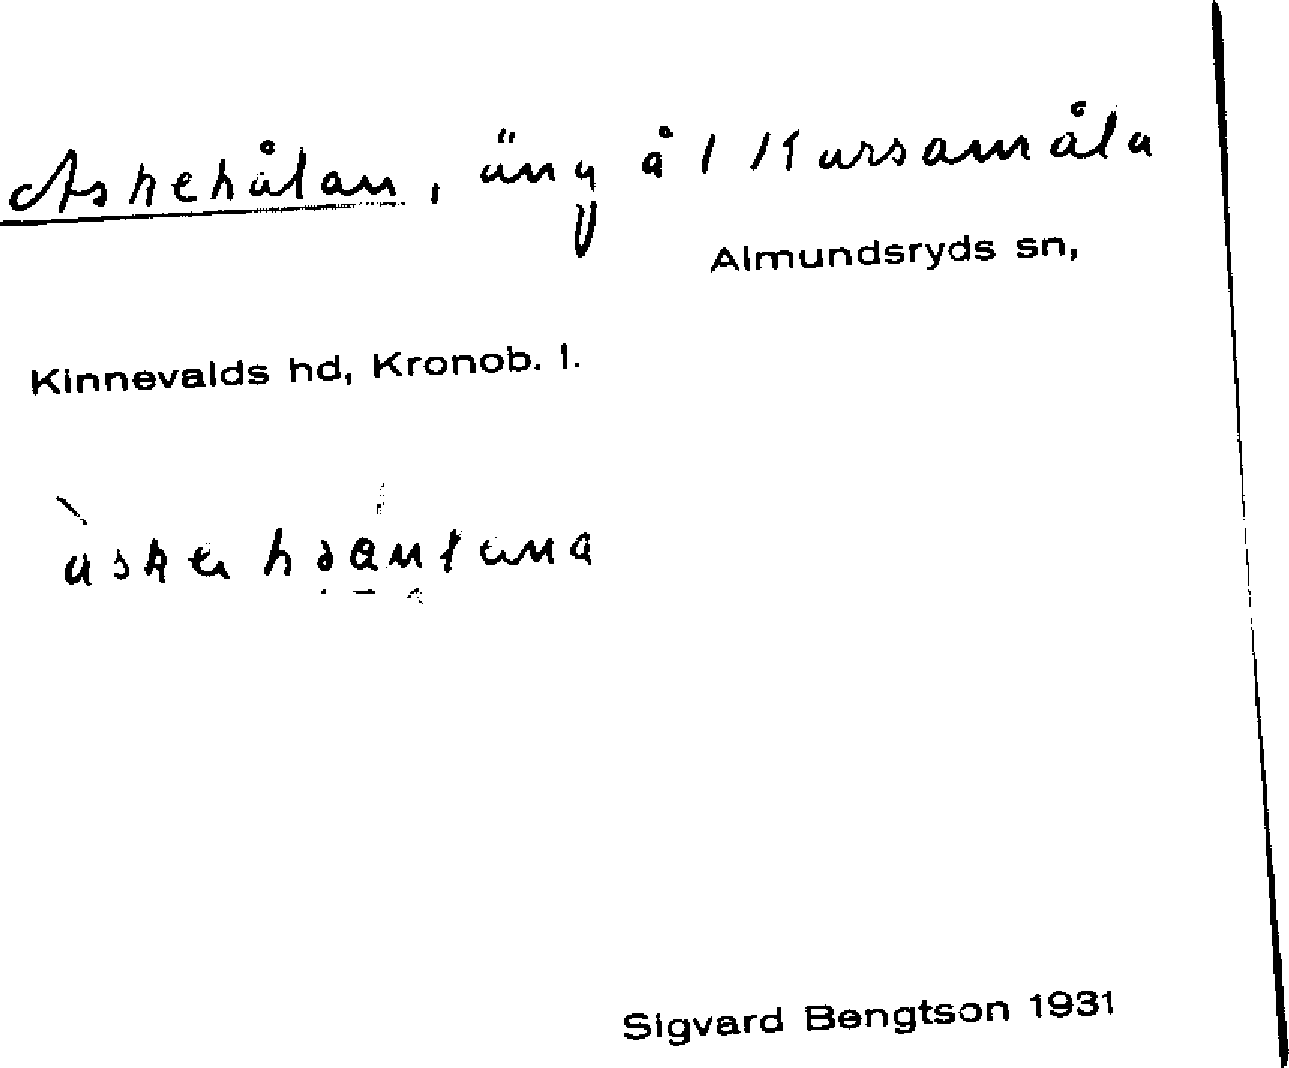 Askehålan, äng å 1 Kursamåla
Almundsryds sn,
Kinnevalds hd, Kronob. l.
Sigvard Bengtson 1931